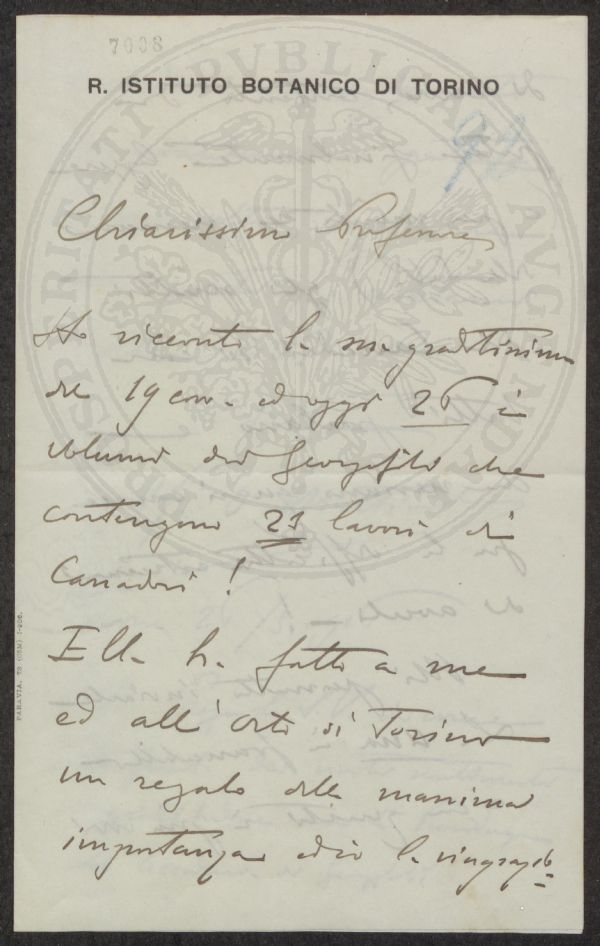 7038
R. ISTITUTO BOTANICO DI TORINO
Chiarissimo Professore
Ho ricevuto la sua graditissima
del 19 corr. ed oggi 26 i
volumi dei Georgofili che
contengono 21 lavori di
Ella ha fatto a me
ed all' Orto di Torino
un regalo della massima
importanza ed io la ringrazio
PARAVIA.